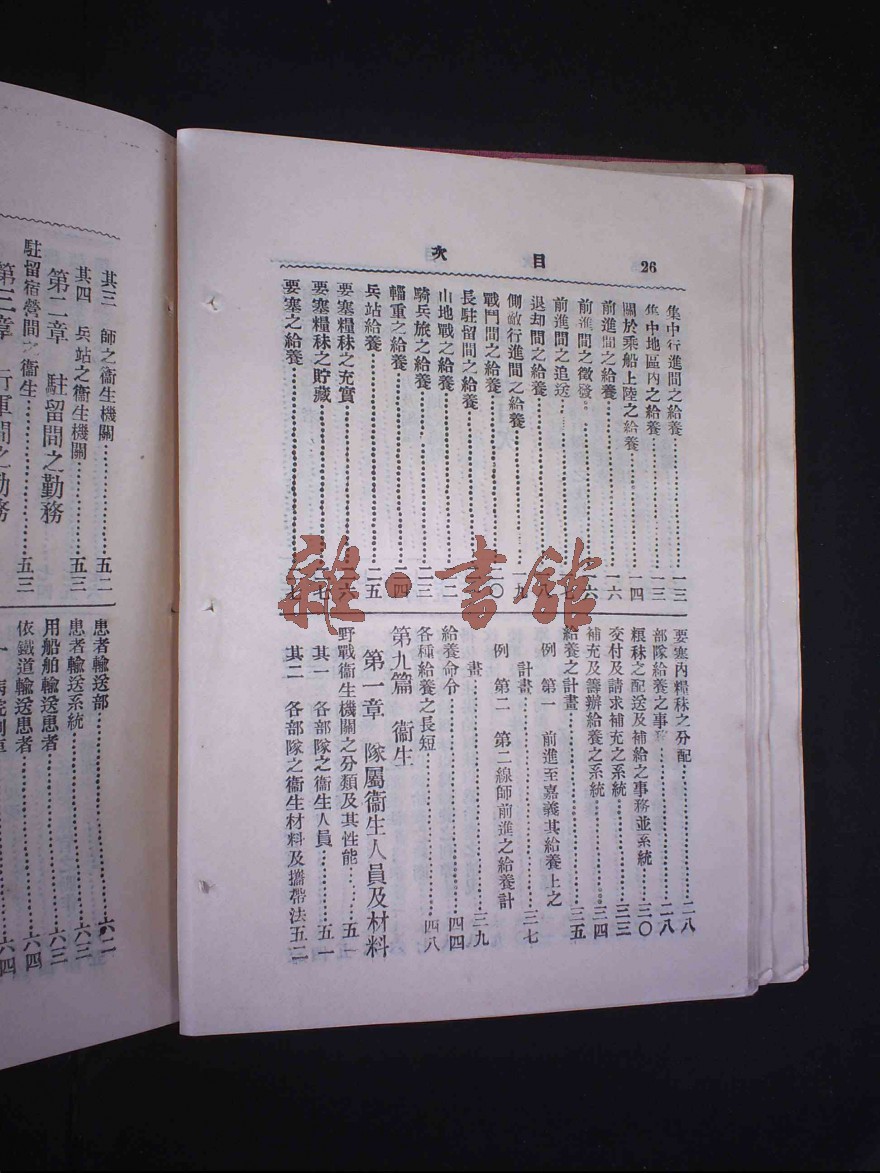 26 目次
集中行進間之給養⋯⋯一三
集中地區内之給養⋯⋯一三
關於乘船上陸之給養⋯⋯一四
前進間之給養⋯⋯一六
前進間之徵發⋯⋯一六
前進間之追送⋯⋯一七
退却間之給養⋯⋯一八
側敵行進間之給養⋯⋯一九
戰鬥間之給養⋯⋯二〇
長駐留間之給養⋯⋯二一
山地戰之給養⋯⋯二二
騎兵旅之給養⋯⋯二三
輜重之給養⋯⋯二四
兵站給養⋯⋯二五
要塞糧秣之充實⋯⋯二六
要塞糧秣之貯藏⋯⋯二七
要塞之給養⋯⋯二七
要塞内糧秣之分配⋯⋯二八
部隊給養之事務⋯⋯二八
糧秣之配送及補給之事務並系統⋯⋯三〇
交付及請求補充之系統⋯⋯三三
補充及籌辦給養之系統⋯⋯三四
給養之計畫⋯⋯三五
例 第一 前進至嘉義其給養上之
計畫⋯⋯三七
例 第二 第二線師前進之給養計
畫⋯⋯三九
給養命令⋯⋯四四
各種給養之長短⋯⋯四八
第九篇 衞生
第一章 隊屬衞生人員及材料
野戰衞生機關之分類及其性能⋯⋯五一
其一 各部隊之衞生人員⋯⋯五一
其二 各部隊之衞生材料及攜帶法五二
其三 師之衞生機關⋯⋯五二
其四 兵站之衞生機關⋯⋯五三
第二章 駐留間之勤務
駐留宿營間之衞生⋯⋯五三
第三章 行軍間之勤務
患者輸送部⋯⋯六二
患者輸送系統⋯⋯六三
用船舶輸送患者⋯⋯六三
依鐵道輸送患者⋯⋯六四
雜·書館